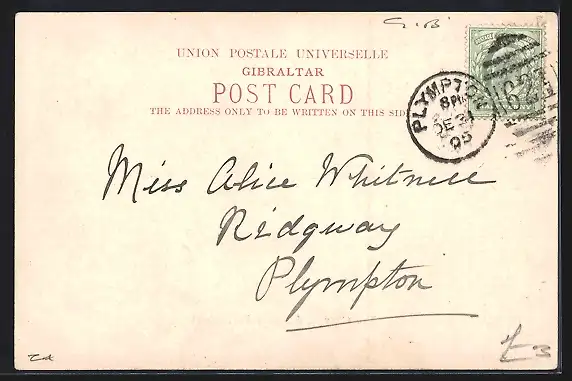 G.B.
UNION POSTALE UNIVERSELLE
GIBRALTAR
POST CARD
THE ADDRESS ONLY TO BE WRITTEN ON THIS SID
PLYMPTON
8 PM
DE 31
05
Miss Alice Whitnell
Ridgway
Plympton